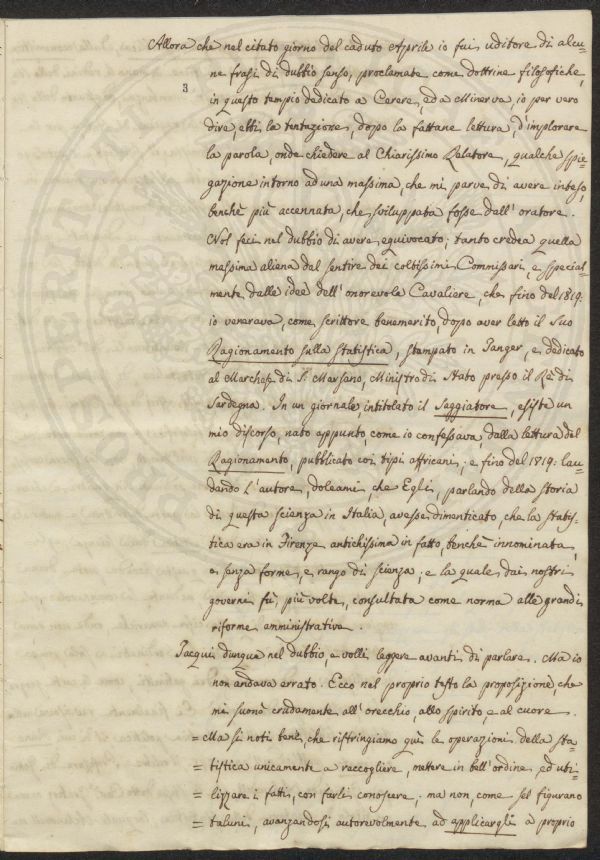 Allora che nel citato giorno del caduto Aprile io fui uditore di alcu-
ne frasi di dubbio senso, proclamate come dottrine filosofiche,
3
in questo tempio dedicato a Cerere, ed a Minerva, io per vero
dire, ebbi la tentazione, dopo la fattane lettura, d'implorare
la parola, onde chiedere al Chiarissimo Relatore, qualche spie-
gazione intorno ad una massima, che mi parve di avere inteso,
benchè più accennata, che sviluppata fosse dall'oratore.
Nol feci nel dubbio di avere equivocato; tanto credea quella
massima aliena dal sentire dei coltissimi Commissarj, e special-
mente dalle idee dell'onorevole Cavaliere, che fino del 1819.
io venerava, come scrittore benemerito, dopo aver letto il suo
Ragionamento sulla Statistica, stampato in Tanger, e dedicato
al Marchese di S. Marsano, Ministro di Stato presso il Re di
Sardegna. In un giornale, intitolato il Saggiatore, esiste un
mio discorso, nato appunto, come io confessava, dalla lettura del
Ragionamento, pubblicato coi tipi affricani; e fino del 1819: lau-
dando l'autore, doleami, che Egli, parlando della storia
di questa scienza in Italia, avesse dimenticato, che la Statis-
tica era in Firenze antichissima in fatto, benchè innominata,
e senza forme, e rango di scienza; e la quale dai nostri
governi fù, più volte, consultata come norma alle grandi
riforme amministrative.
Tacqui dunque nel dubbio, e volli leggere avanti di parlare. Ma io
non andava errato. Ecco nel proprio testo la proposizione, che
mi suonò crudamente all'orecchio, allo spirito, e al cuore.
= Ma si noti bene, che ristringiamo quì le operazioni della sta-
= tistica unicamente a raccogliere, mettere in bell'ordine, ed uti-
= lizzare i fatti, con farli conoscere; ma non, come sel figurano
= taluni, avanzandosi autorevolmente ad applicargli a proprio